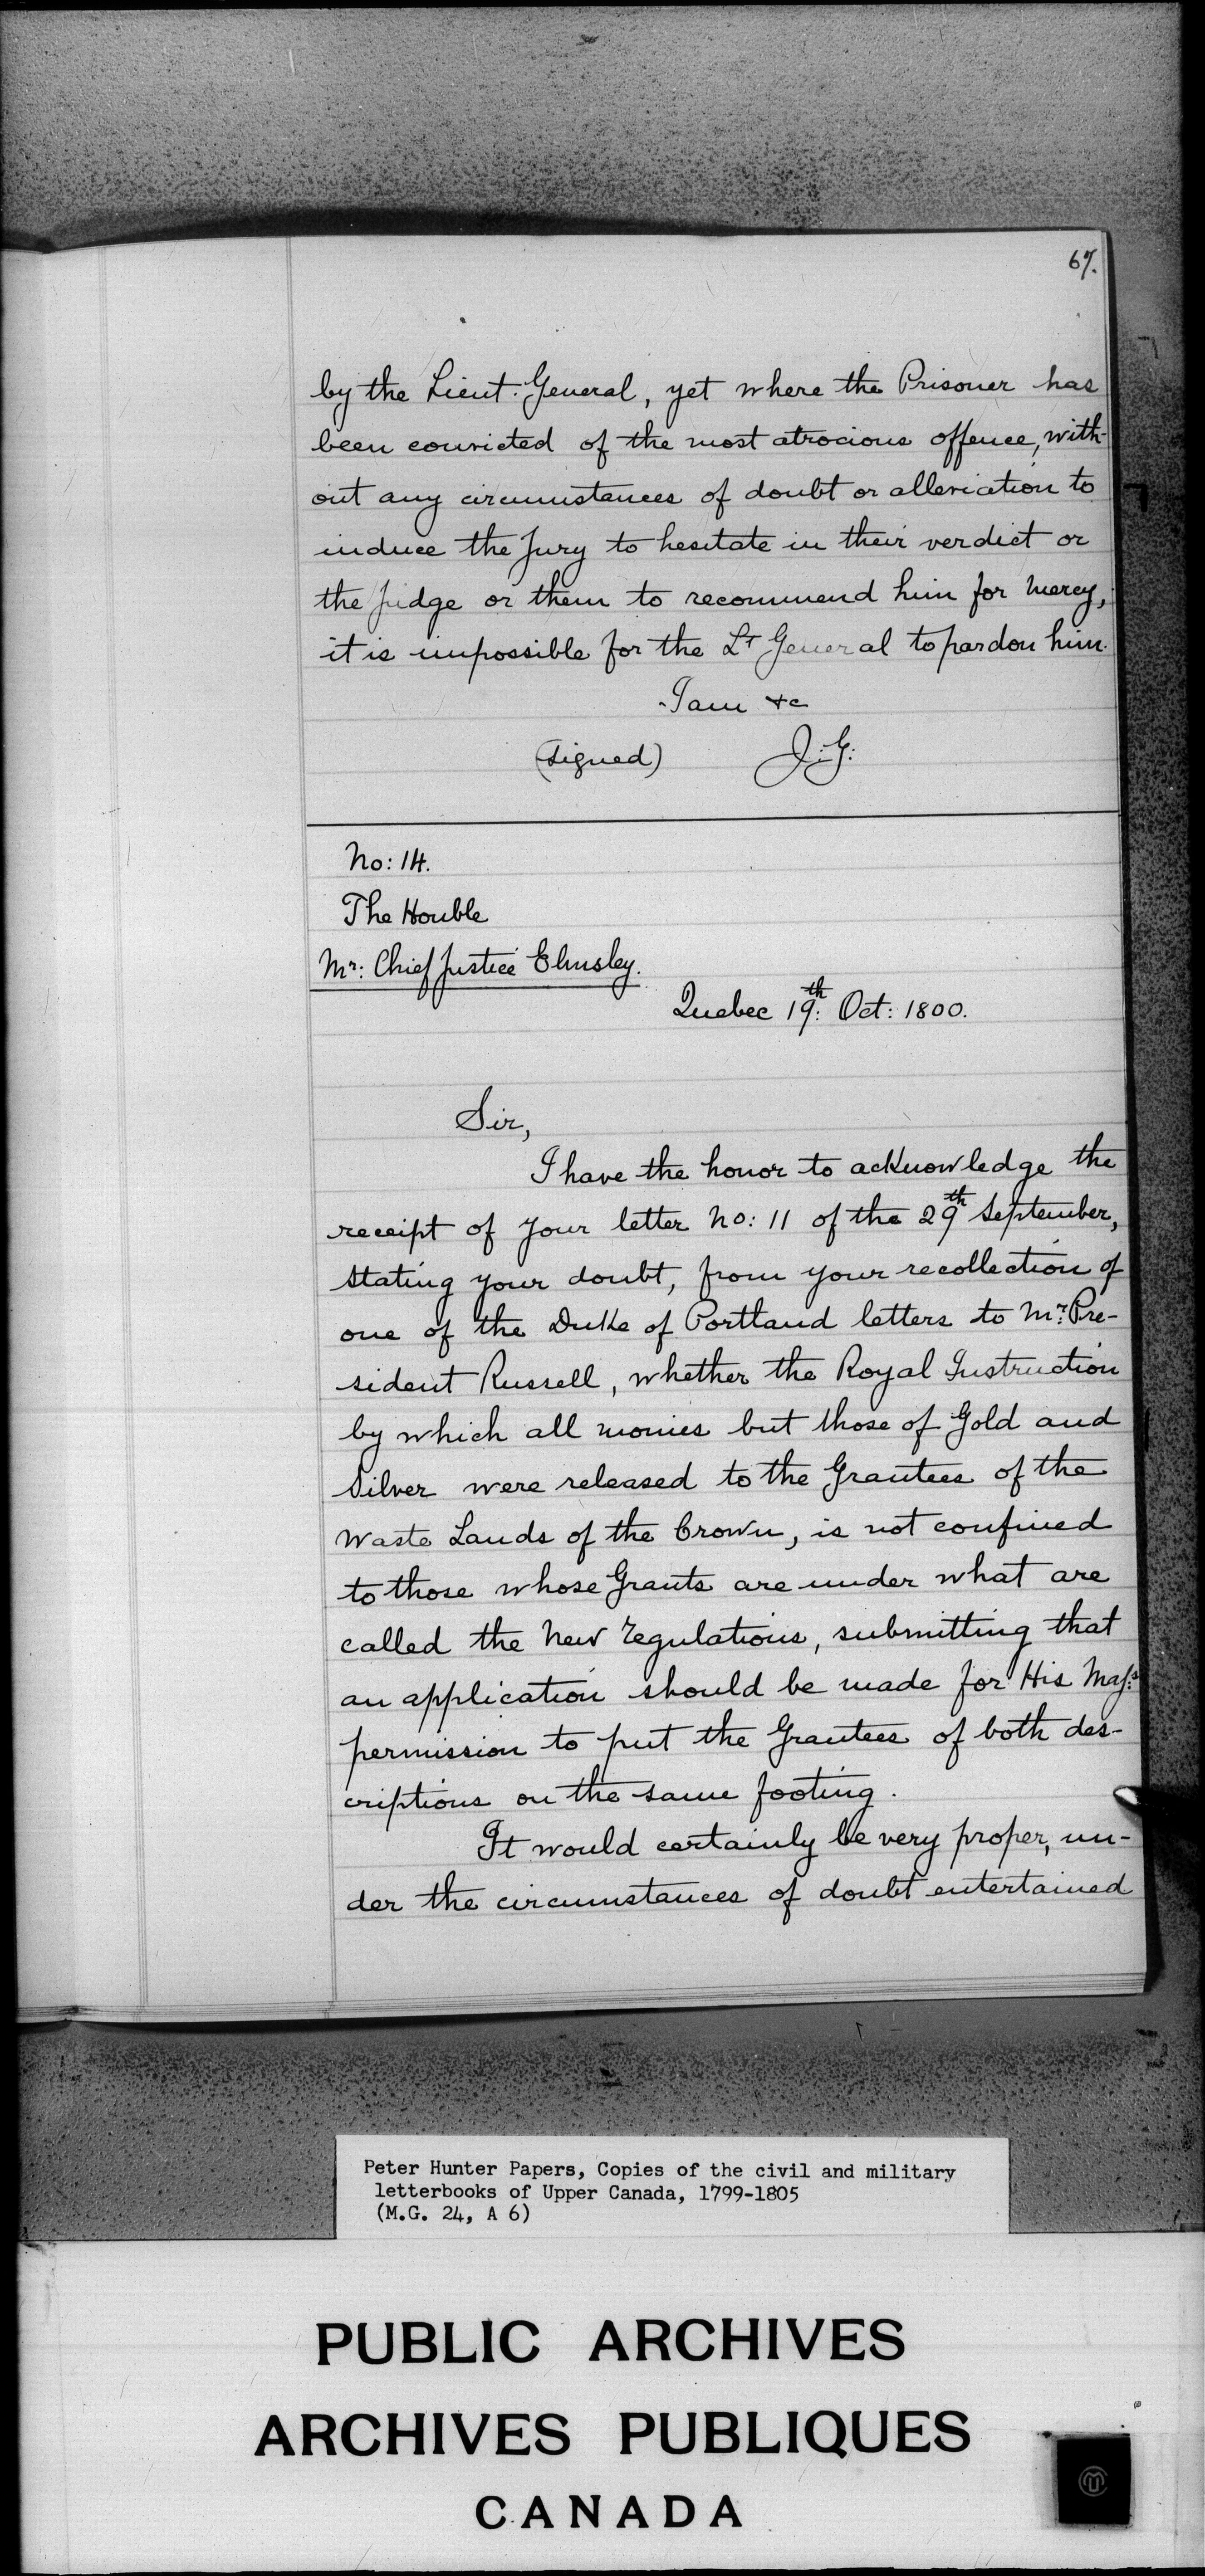 67.
by the Lieut. General, yet where the Prisoner has
been convicted of the most atrocious offence, with-
out any circumstances of doubt or alleviation to
induce the Jury to hesitate in their verdict or
the judge or them to recommend him for mercy,
it is impossible for the Lt General to pardon him.
I am &c
(signed) J. G:
No: 14.
The Honble
Mr: Chief Justice Elmsley.
Quebec 19th: Oct: 1800.
Sir,
I have the honor to acknowledge the
receipt of your letter No: 11 of the 29th September,
stating your doubt, from your recollection of
one of the Duke of Portland letters to Mr: Pre-
sident Russell, whether the Royal Instruction
by which all monies but those of Gold and
Silver were released to the Grantees of the
Waste Lands of the Crown, is not confined
to those whose Grants are under what are
called the New regulations, submitting that
an application should be made for His Maj:s
permission to put the Grantees of both des-
criptions on the same footing.
It would certainly be very proper, un-
der the circumstances of doubt entertained
Peter Hunter Papers, Copies of the civil and military
letterbooks of Upper Canada, 1799-1805
(M.G. 24, A 6)
PUBLIC ARCHIVES
ARCHIVES PUBLIQUES
CANADA